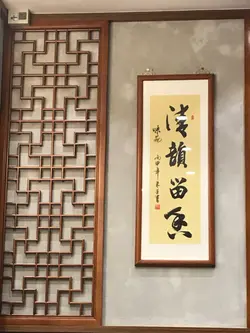 清韻留香
丙申年